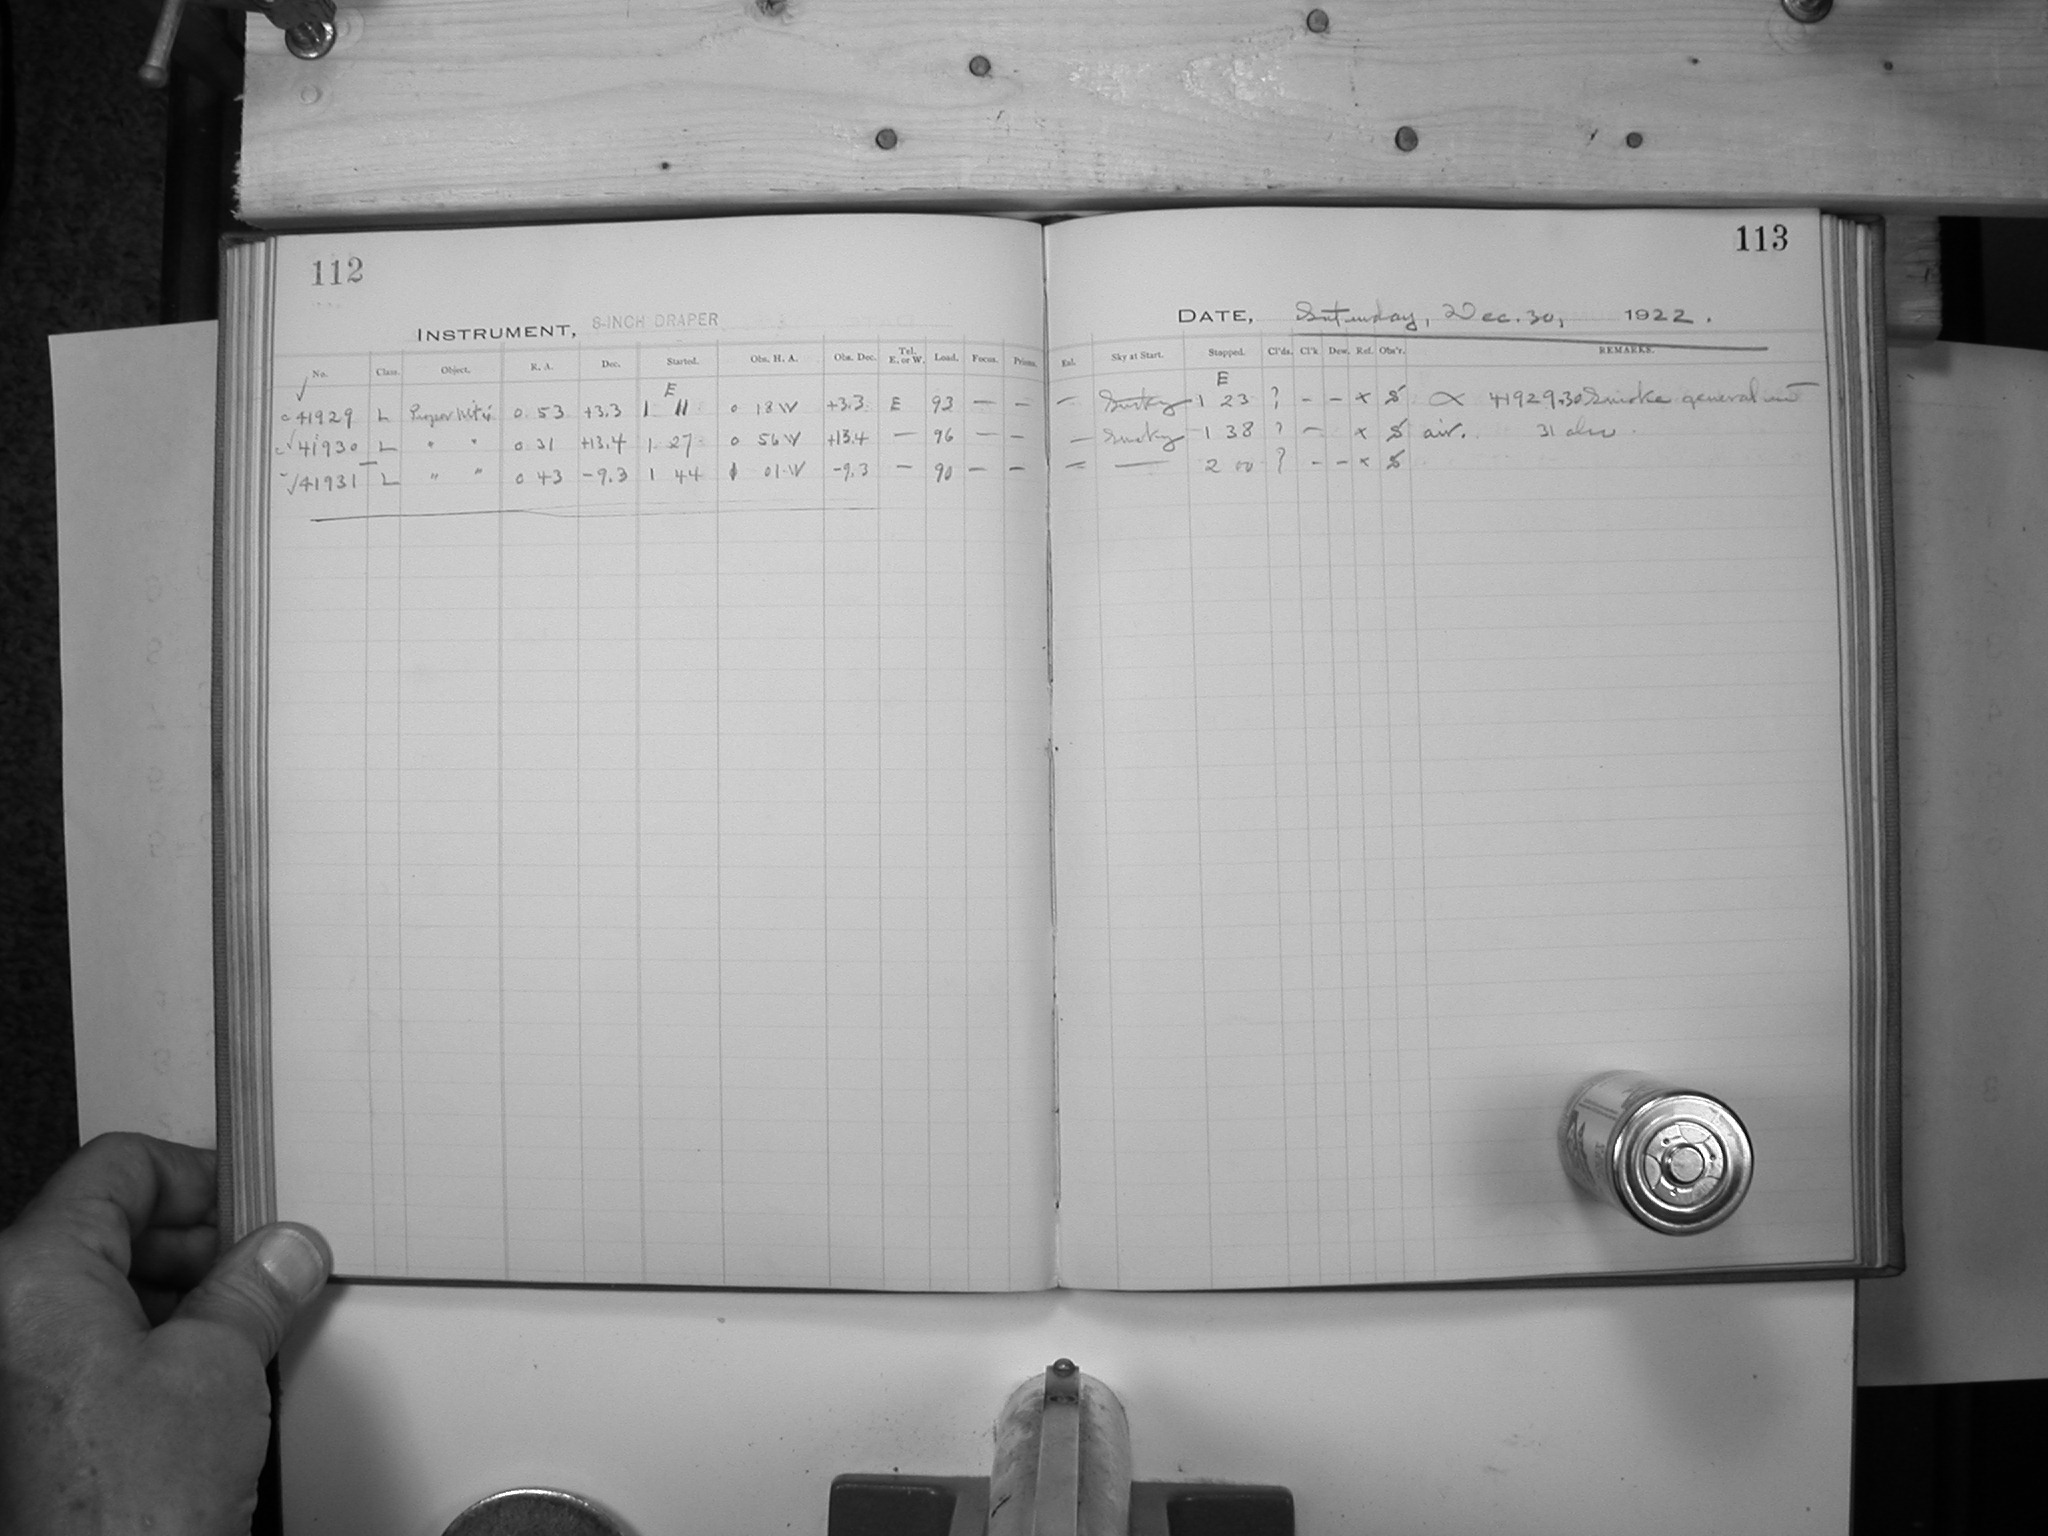 112
INSTRUMENT, 8-INCH DRAPER
No. Class. Object. R. A. Dec. Started. Obs. H. A. Obs. Dec. Tel. E. or W. Load. Focus. Prisms.
E
c 41929 L Proper Mot's 0 53 +3.3 1 11 0 18 W +3.3 E 93 — —
c √ 41930 L " " 0 31 +13.4 1 27 0 56 W +13.4 — 96 — —
√ 41931 L " " 0 43 -9.3 1 44 1 01 W -9.3 — 90 — —
113
DATE, Saturday, Dec. 30, 1922.
Enl. Sky at Start. Stopped. Cl'ds. Cl'k Dew. Ref. Obs'r. REMARKS.
E
— Smoky 1 23 ? — — x S 41929.30 Smoke general in
— Smoky 1 38 ? — x S air. 31 also.
— — 2 00 ? — — x S